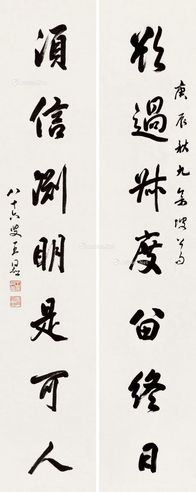 庚辰秋九
欲過叔度留終日
須信淵明是可人
八十六叟王